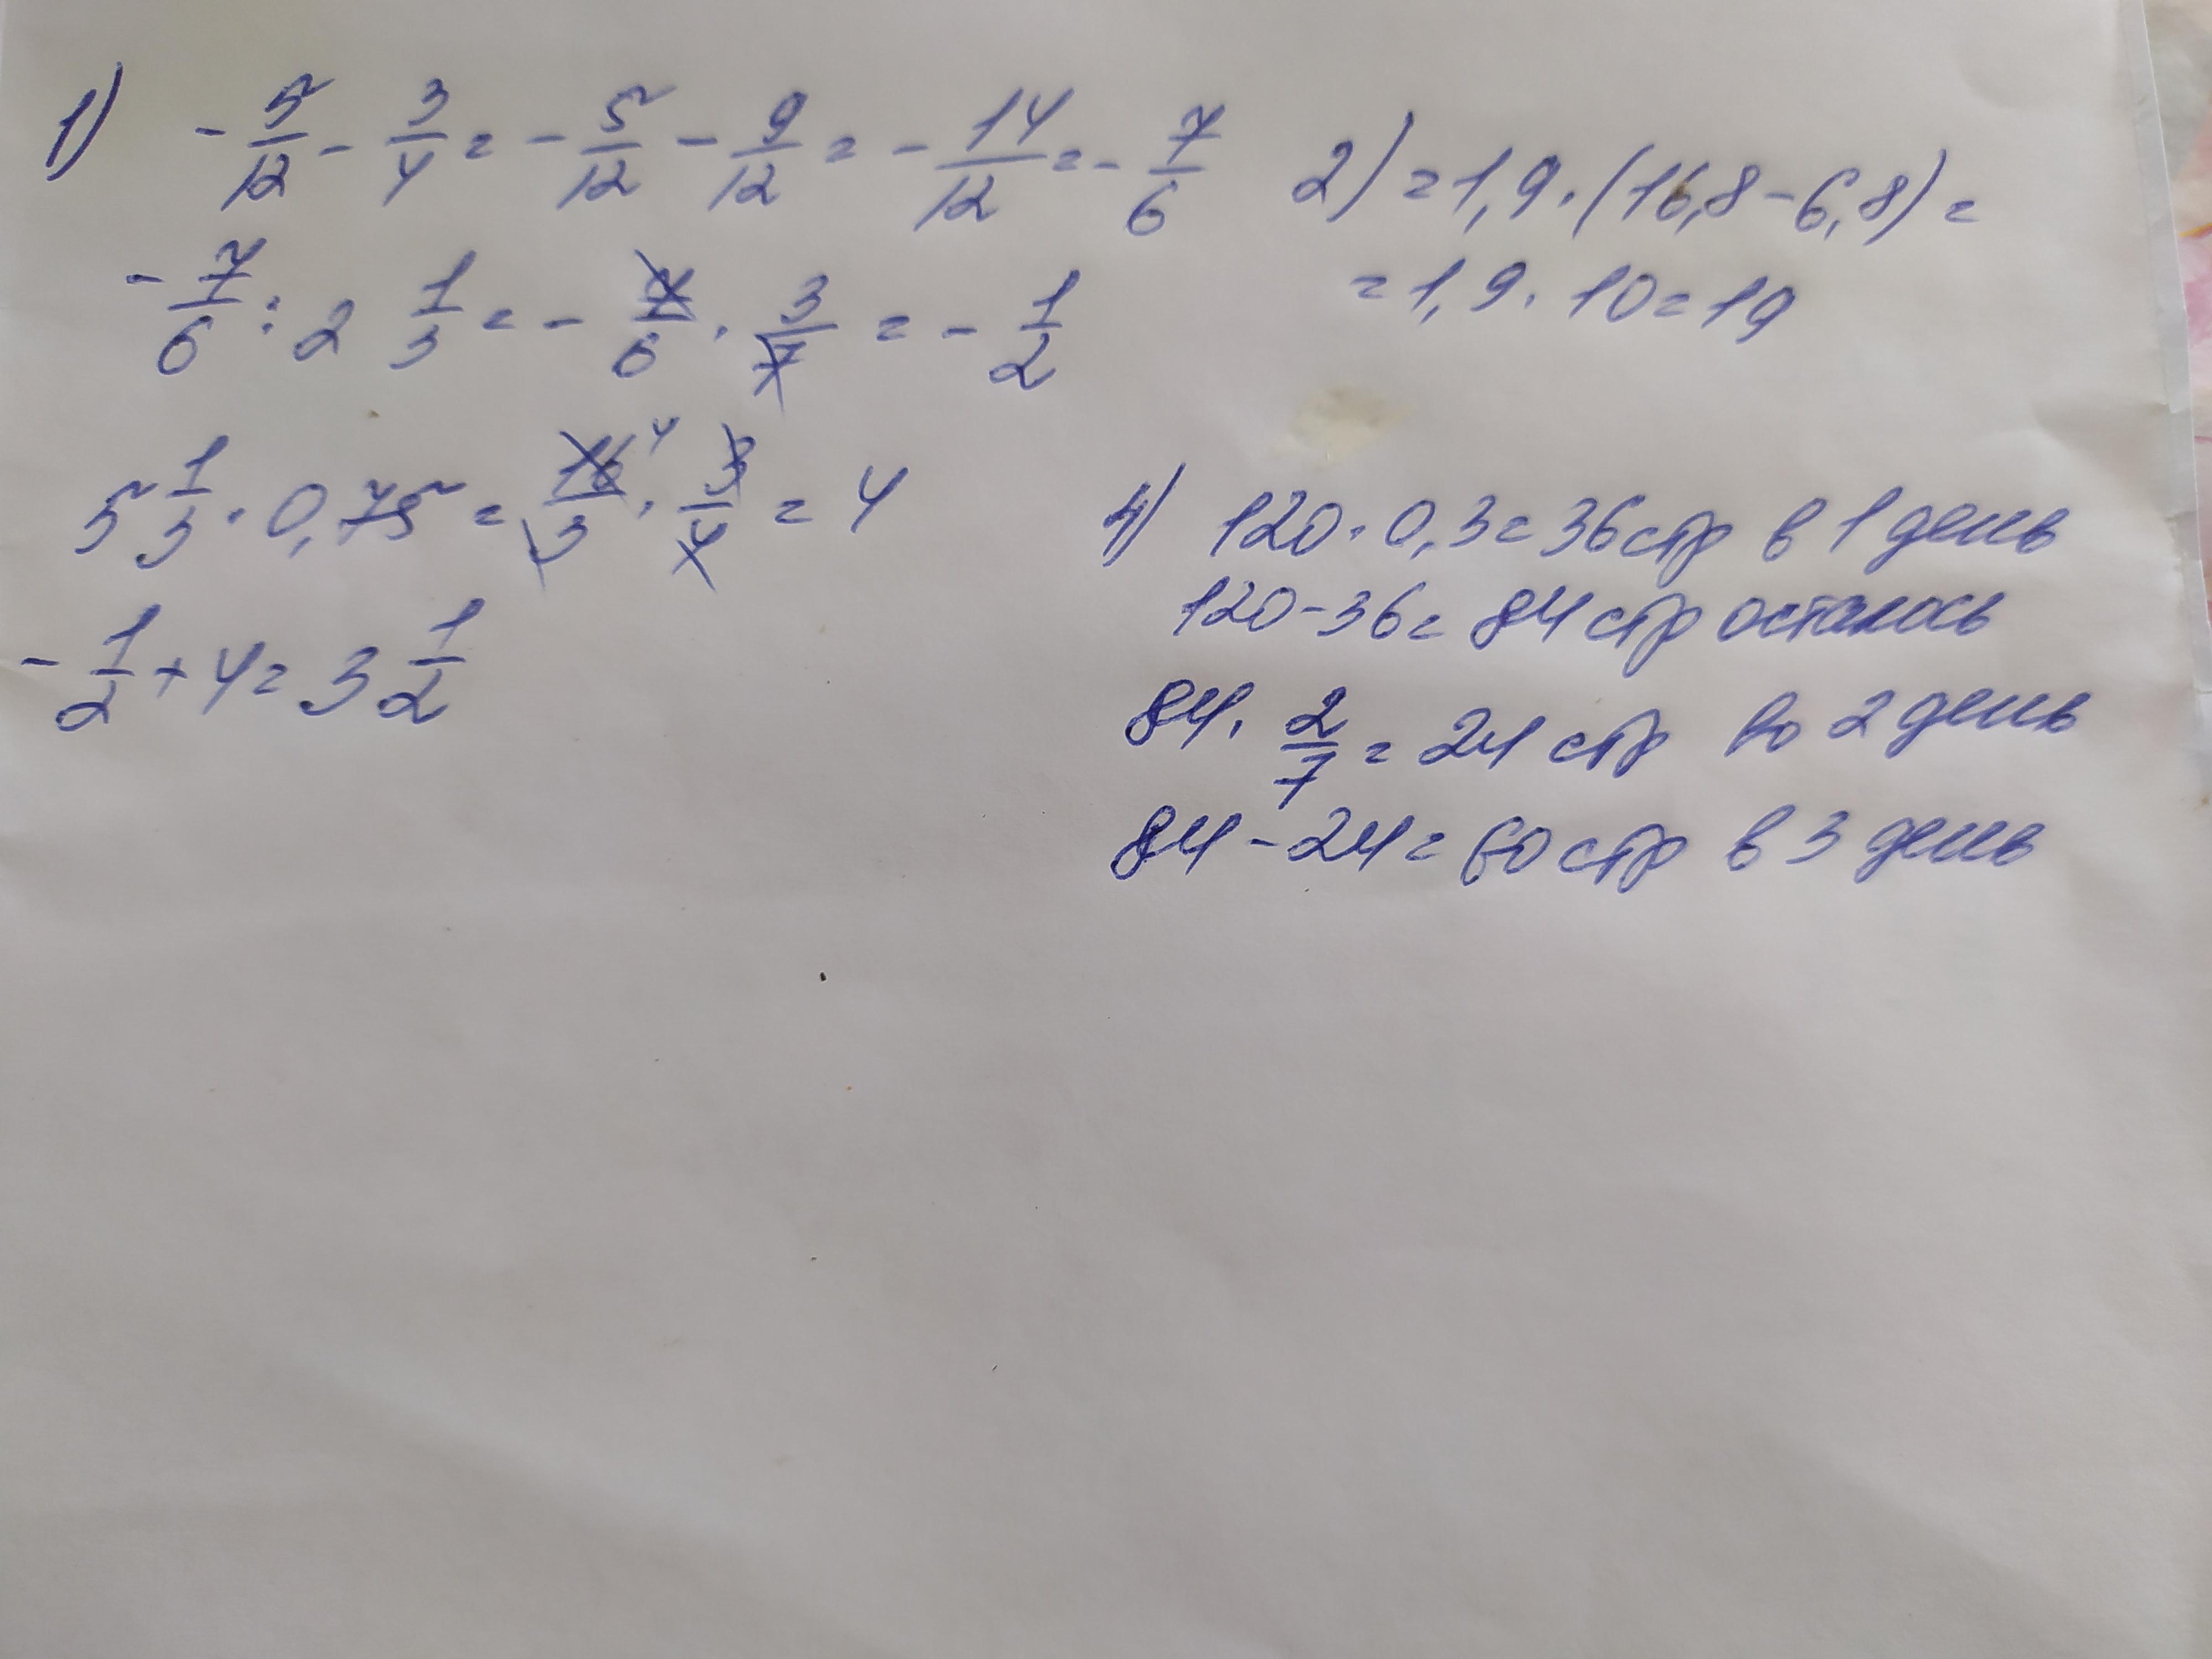 1) - 5/12 - 3/4 = - 5/12 - 9/12 = - 14/12 = - 7/6
- 7/6 : 2 1/3 = - 7/6 · 3/7 = - 1/2
5 1/3 · 0,75 = 16/3 4 · 3/4 = 4
- 1/2 + 4 = 3 1/2
2) = 1,9 · (16,8 - 6,8) =
= 1,9 · 10 = 19
4) 120 · 0,3 = 36 стр в 1 день
120 - 36 = 84 стр осталось
84 · 2/7 = 24 стр во 2 день
84 - 24 = 60 стр в 3 день